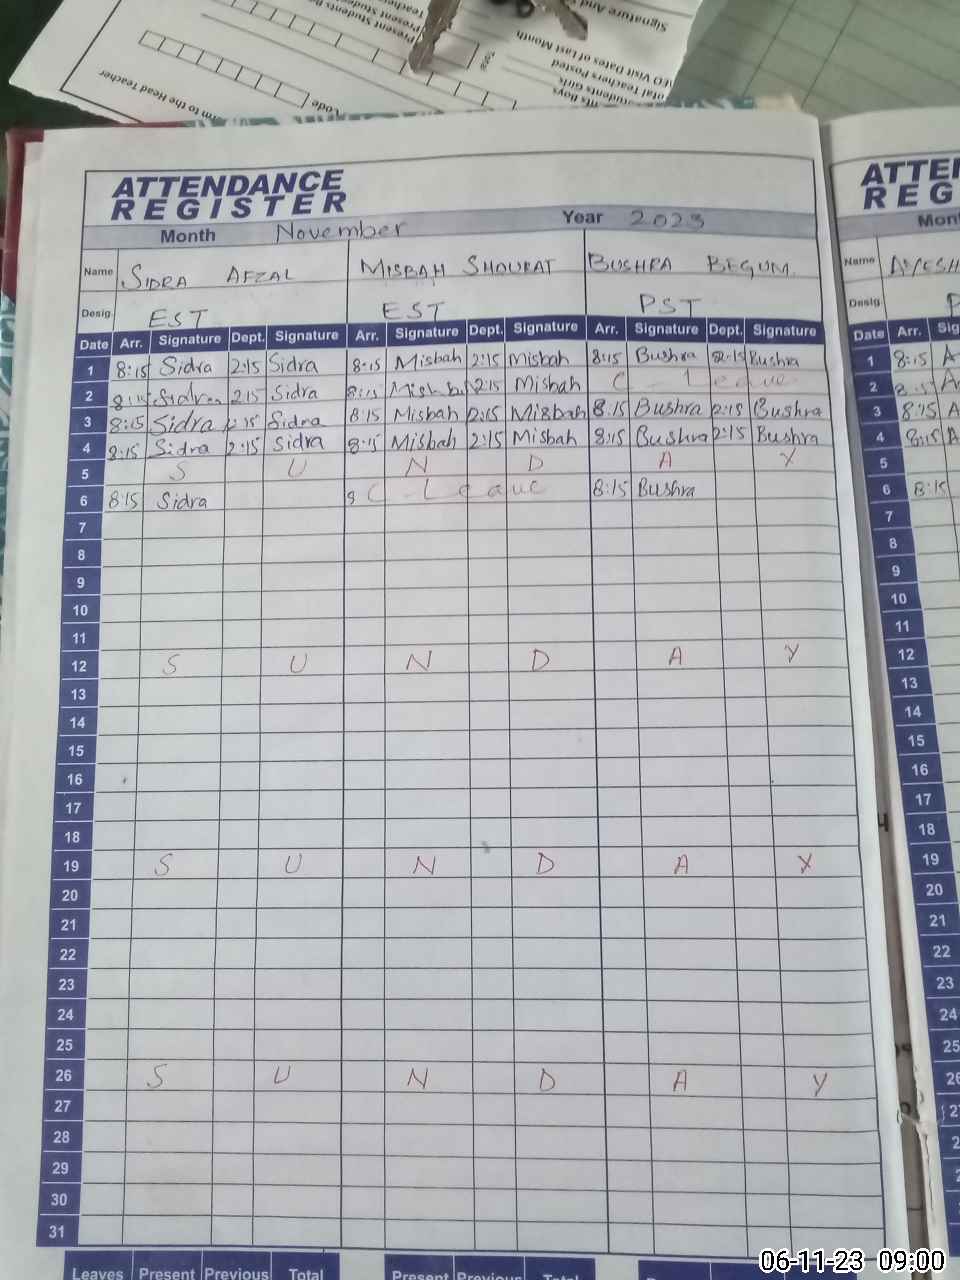 Signature And
Present Students Bo
Present Student
Teache
Total
EO Visit Dates of Last Month
otal Teachers Posted
Students Girls
nts Boys
Code
rm to the Head Teacher
ATTENDANCE
REGISTER
Month November Year 2023
Name SIDRA AFZAL MISBAH SHOUKAT BUSHRA BEGUM
Desig. EST EST PST
Date Arr. Signature Dept. Signature Arr. Signature Dept. Signature Arr. Signature Dept. Signature
1 8:15 Sidra 2:15 Sidra 8:15 Misbah 2:15 Misbah 8:15 Bushra 2:15 Bushra
2 8:15 Sidra 2:15 Sidra 8:15 Misbah 2:15 Misbah C - Leave
3 8:15 Sidra 2:15 Sidra 8:15 Misbah 2:15 Misbah 8:15 Bushra 2:15 Bushra
4 8:15 Sidra 2:15 Sidra 8:15 Misbah 2:15 Misbah 8:15 Bushra 2:15 Bushra
5 S U N D A Y
6 8:15 Sidra 8 C - Leave 8:15 Bushra
7
8
9
10
11
12 S U N D A Y
13
14
15
16
17
18
19 S U N D A Y
20
21
22
23
24
25
26 S U N D A Y
27
28
29
30
31
Leaves Present Previous Total Present Previous Total
ATTEN
REG
Mon
Name AYESH
Desig.
Date Arr. Sig
1 8:15 A
2 8:15 A
3 8:15 A
4 8:15 A
5
6 8:15
7
8
9
10
11
12
13
14
15
16
17
18
19
20
21
22
23
24
25
26
06-11-23 09:00